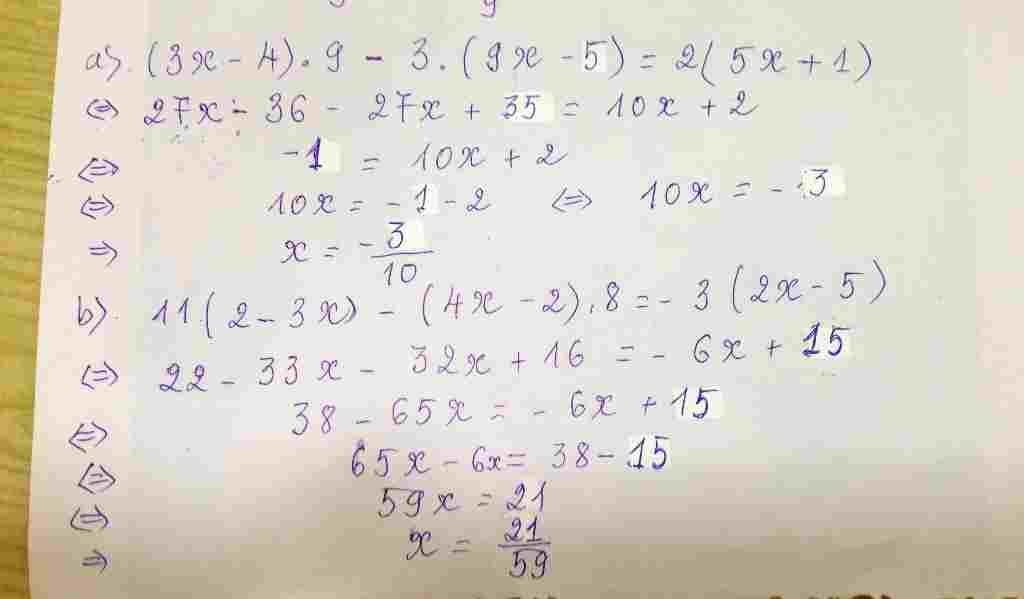 a). (3x - 4).9 - 3.(9x - 5) = 2(5x + 1)
⇔ 27x - 36 - 27x + 35 = 10x + 2
⇔ -1 = 10x + 2
⇔ 10x = -1 - 2 ⇔ 10x = -3
⇒ x = -3/10
b). 11(2 - 3x) - (4x - 2).8 = -3(2x - 5)
⇔ 22 - 33x - 32x + 16 = -6x + 15
⇔ 38 - 65x = -6x + 15
⇔ 65x - 6x = 38 - 15
⇔ 59x = 21
⇒ x = 21/59